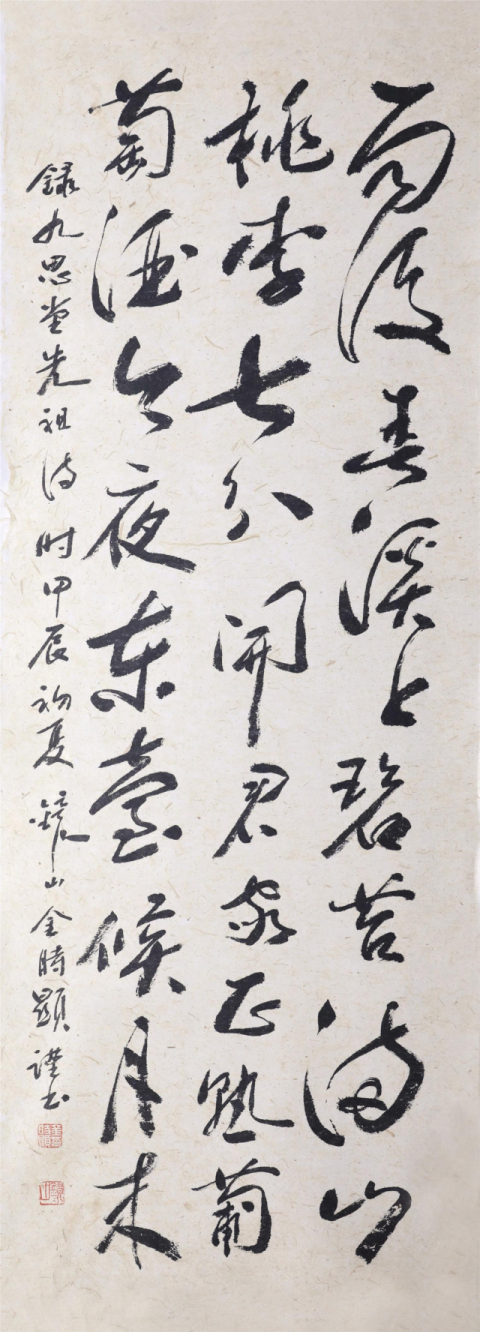 雨後春溪上碧苔滿山
桃李七分開君家正熟葡
萄酒今夜東臺候月来
錄九思堂先祖詩 時甲辰初夏 山金時顯謹書